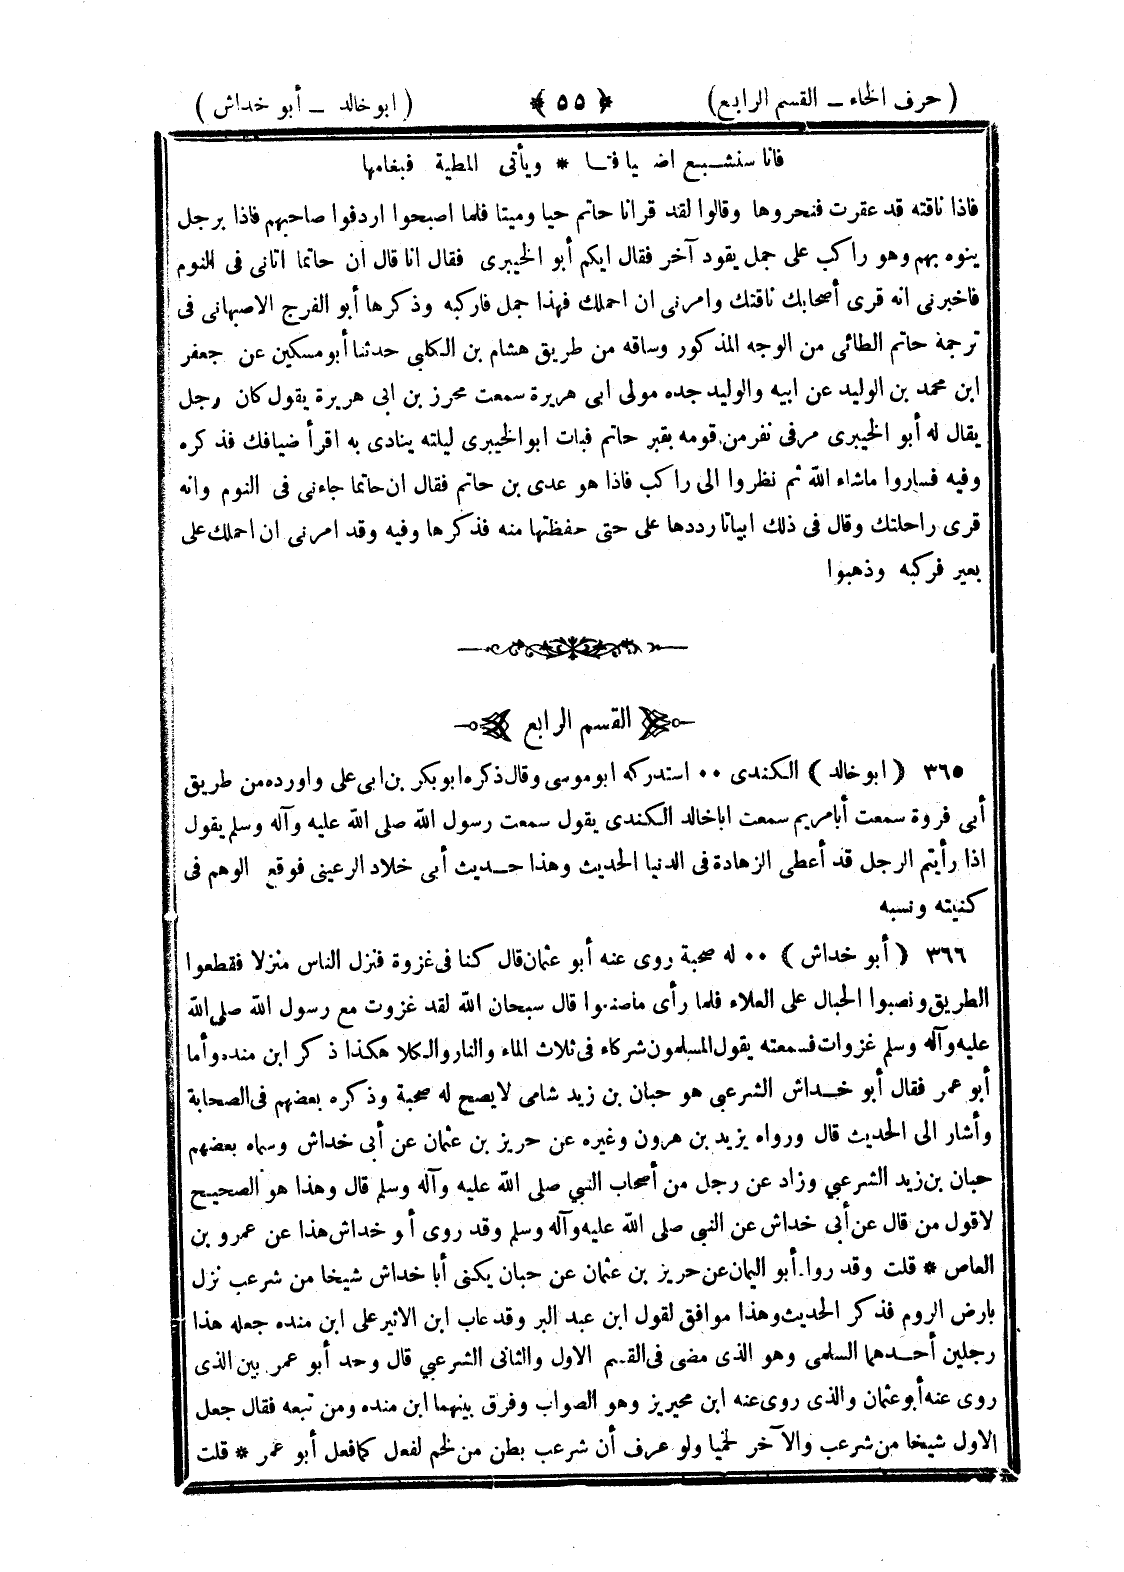 ( حرف الخاء – القسم الرابع ) ﴿ ٥٥ ﴾ ( ابو خالد – أبو خداش )
فانا سنشبع اضيافنا * ويأتى المطية فبغامها
فاذا ناقته قد عقرت فنحروها وقالوا لقد قرانا حاتم حيا وميتا فلما اصبحوا اردفوا صاحبهم فاذا برجل
ينوه بهم وهو راكب على جمل يقود آخر فقال ايكم أبو الخيبرى فقال انا قال ان حاتما اتانى فى النوم
فاخبرنى انه قرى أصحابك ناقتك وامرنى ان احملك فهذا جمل فاركبه وذكرها أبو الفرج الاصبهانى فى
ترجمة حاتم الطائى من الوجه المذكور وساقه من طريق هشام بن الكلبى حدثنا أبو مسكين عن جعفر
ابن محمد بن الوليد عن ابيه والوليد جده مولى ابى هريرة سمعت محرز بن ابى هريرة يقول كان رجل
يقال له أبو الخيبرى مر فى نفر من قومه بقبر حاتم فبات ابو الخيبرى ليلته ينادى به اقرأ ضيافك فذكره
وفيه فساروا ماشاء الله ثم نظروا الى راكب فاذا هو عدى بن حاتم فقال ان حاتما جاءنى فى النوم وانه
قرى راحلتك وقال فى ذلك ابياتا رددها على حتى حفظتها منه فذكرها وفيه وقد امرنى ان احملك على
بعير فركبه وذهبوا
القسم الرابع
٣٦٥ ( ابو خالد ) الكندى ٠٠ استدركه ابو موسى وقال ذكره ابو بكر بن ابى على واورده من طريق
أبى فروة سمعت أبا مريم سمعت ابا خالد الكندى يقول سمعت رسول الله صلى الله عليه وآله وسلم يقول
اذا رأيتم الرجل قد أعطى الزهادة فى الدنيا الحديث وهذا حديث أبى خلاد الرعينى فوقع الوهم فى
كنيته ونسبه
٣٦٦ ( أبو خداش ) ٠٠ له صحبة روى عنه أبو عثمان قال كنا فى غزوة فنزل الناس منزلا فقطعوا
الطريق ونصبوا الحبال على العلاء فلما رأى ماصنعوا قال سبحان الله لقد غزوت مع رسول الله صلى الله
عليه وآله وسلم غزوات فسمعته يقول المسلمون شركاء فى ثلاث الماء والنار والكلا هكذا ذكر ابن منده وأما
أبو عمر فقال أبو خداش الشرعبى هو حبان بن زيد شامى لايصح له صحبة وذكره بعضهم فى الصحابة
وأشار الى الحديث قال ورواه يزيد بن هرون وغيره عن حريز بن عثمان عن أبى خداش وسماه بعضهم
حبان بن زيد الشرعبي وزاد عن رجل من أصحاب النبي صلى الله عليه وآله وسلم قال وهذا هو الصحيح
لاقول من قال عن أبى خداش عن النبي صلى الله عليه وآله وسلم وقد روى أو خداش هذا عن عمرو بن
العاص * قلت وقد روا.أبو اليمان عن حريز بن عثمان عن حبان يكنى أبا خداش شيخا من شرعب نزل
بارض الروم فذكر الحديث وهذا موافق لقول ابن عبد البر وقد عاب ابن الاثير على ابن منده جعله هذا
رجلين أحدهما السلمى وهو الذى مضى فى القسم الاول والثانى الشرعبي قال وحد أبو عمر بين الذى
روى عنه أبو عثمان والذى روى عنه ابن محيريز وهو الصواب وفرق بينهما ابن منده ومن تبعه فقال جعل
الاول شيخا من شرعب والآخر لخميا ولو عرف أن شرعب بطن من لخم لفعل كما فعل أبو عمر * قلت